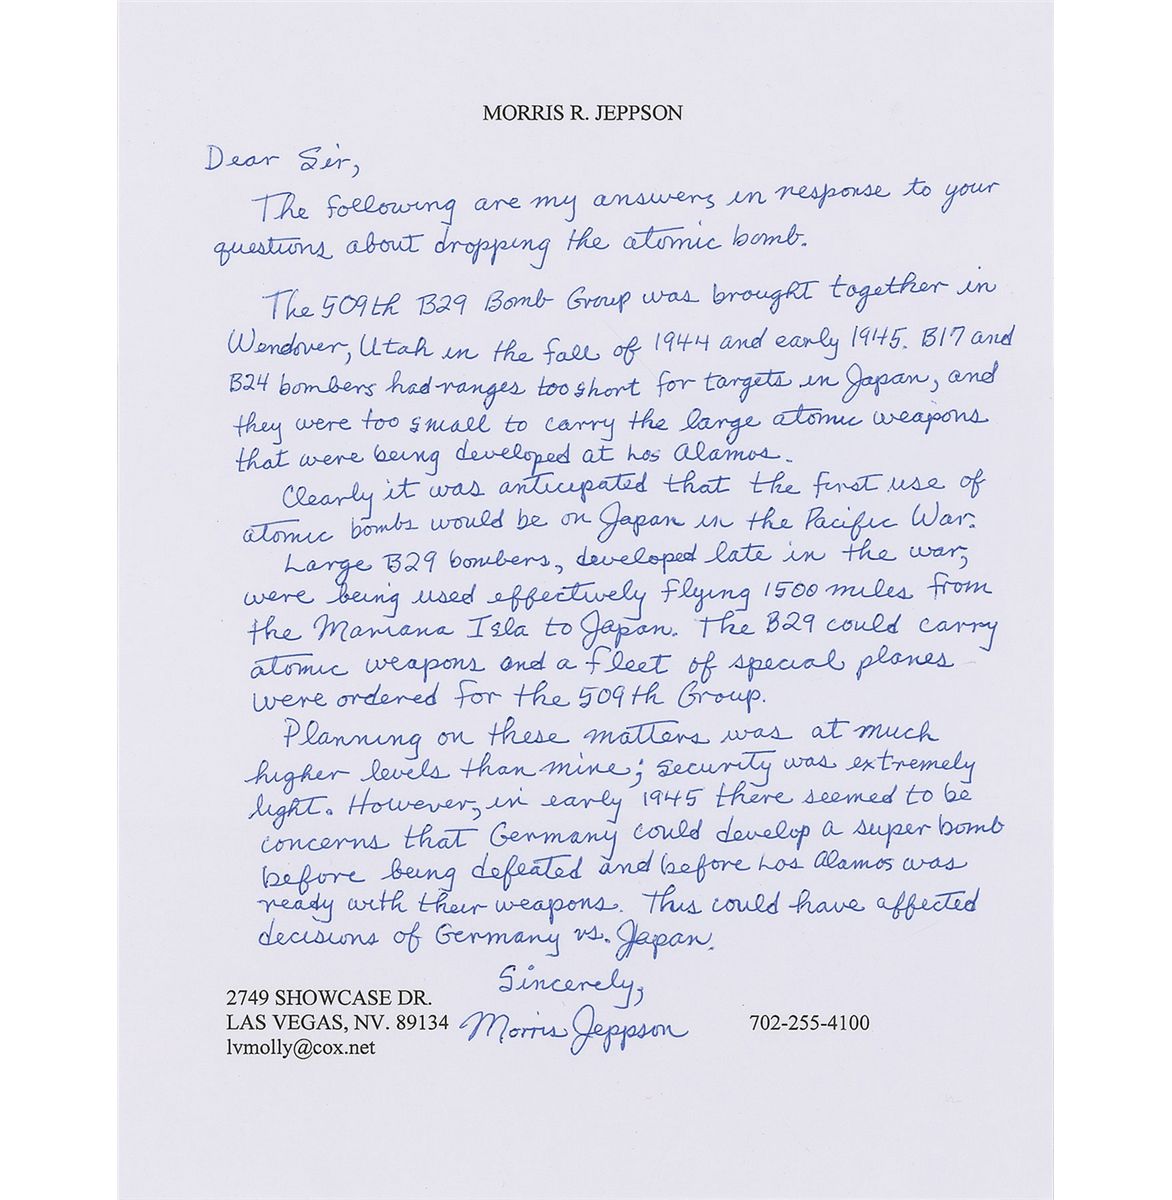 MORRIS R. JEPPSON
Dear Sir,
The following are my answers in response to your
questions about dropping the atomic bomb.
The 509th B29 Bomb Group was brought together in
Wendover, Utah in the fall of 1944 and early 1945. B17 and
B24 bombers had ranges too short for targets in Japan, and
they were too small to carry the large atomic weapons
that were being developed at Los Alamos.
Clearly it was anticipated that the first use of
atomic bombs would be on Japan in the Pacific War.
Large B29 bombers, developed late in the war,
were being used effectively flying 1500 miles from
the Mariana Isla to Japan. The B29 could carry
atomic weapons and a fleet of special planes
were ordered for the 509th Group.
Planning on these matters was at much
higher levels than mine; security was extremely
tight. However, in early 1945 there seemed to be
concerns that Germany could develop a super bomb
before being defeated and before Los Alamos was
ready with their weapons. This could have affected
decisions of Germany vs. Japan.
Sincerely,
Morris Jeppson
2749 SHOWCASE DR.
LAS VEGAS, NV. 89134
lvmolly@cox.net
702-255-4100